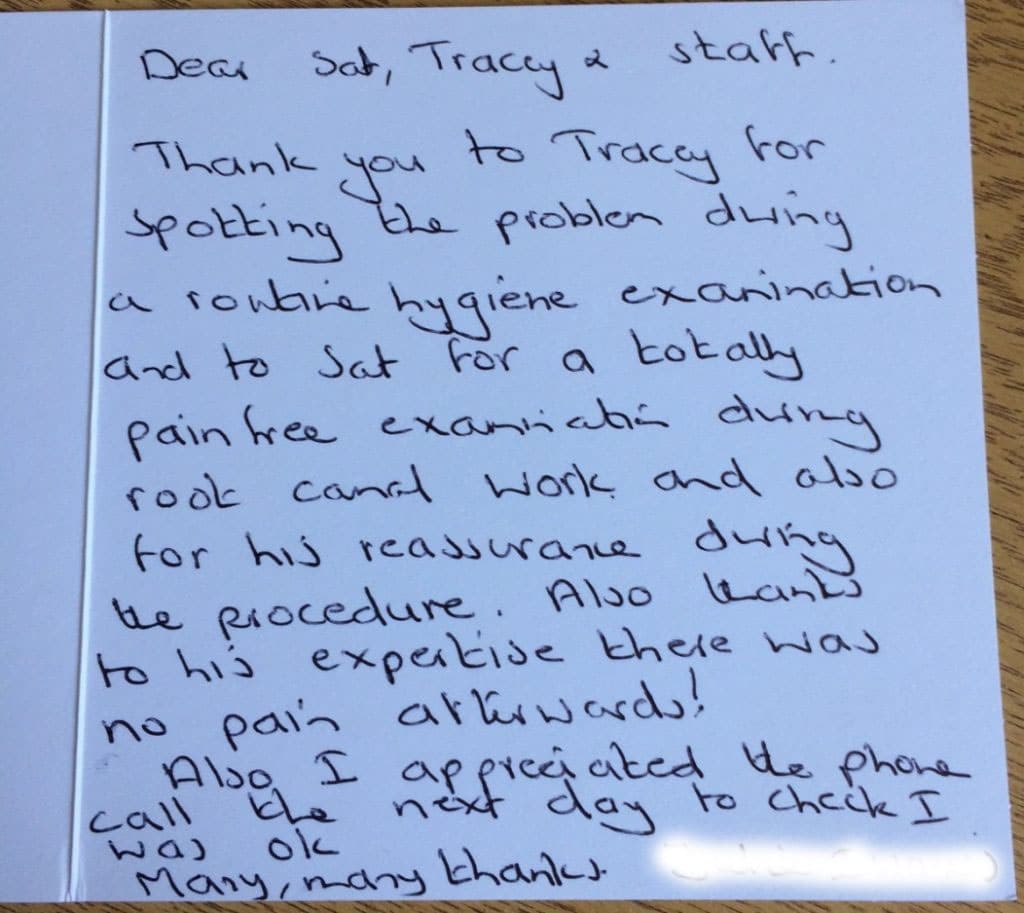 Dear Sat, Tracey & staff.
Thank you to Tracey for
spotting the problem during
a routine hygiene examination
and to Sat for a totally
pain free examination during
root canal work and also
for his reassurance during
the procedure. Also thanks
to his expertise there was
no pain afterwards!
Also I appreciated the phone
call the next day to check I
was ok
Many, many thanks.